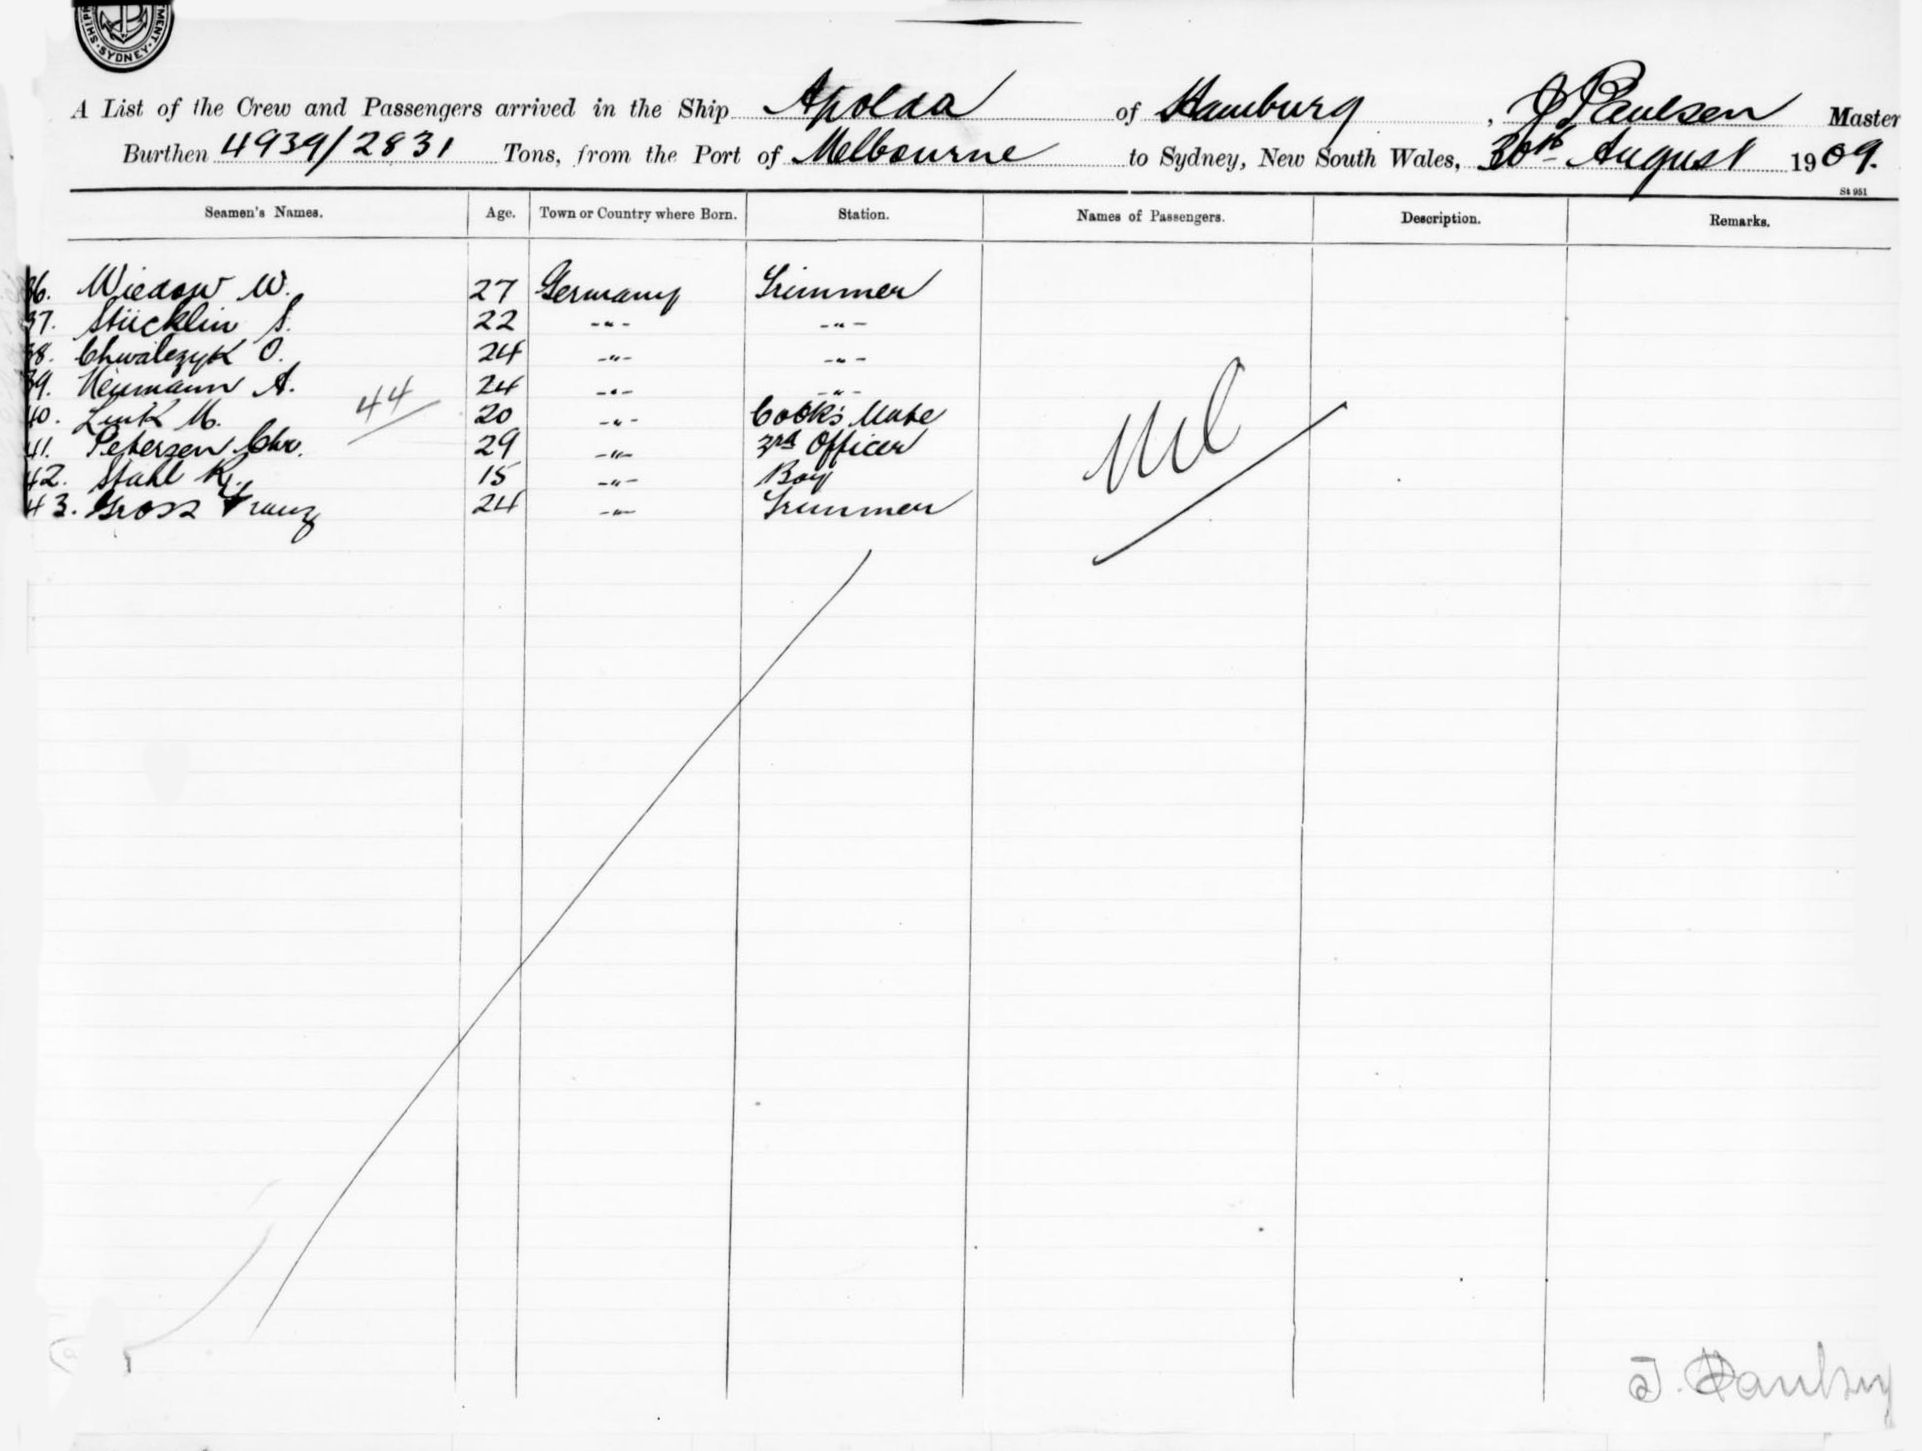 SHIPP · SYDNEY · MENT
A List of the Crew and Passengers arrived in the Ship Apolda of Hamburg, J Paulsen Master
Burthen 4939/2831 Tons, from the Port of Melbourne to Sydney, New South Wales, 30th August 1909.
St 951
Seamen's Names. Age. Town or Country where Born. Station. Names of Passengers. Description. Remarks.
36. Wiedow W. 27 Germany Trimmer
37. Stücklin S. 22 -"- -"-
38. Chwalczyk O. 24 -"- -"-
39. Neumann A. 24 -"- -"-
44
40. Link M. 20 -"- Cook's Mate
41. Petersen Chr. 29 -"- 3rd Officer
42. Stahl R. 15 -"- Boy
43. Gross Franz 24 -"- Trimmer
Nil